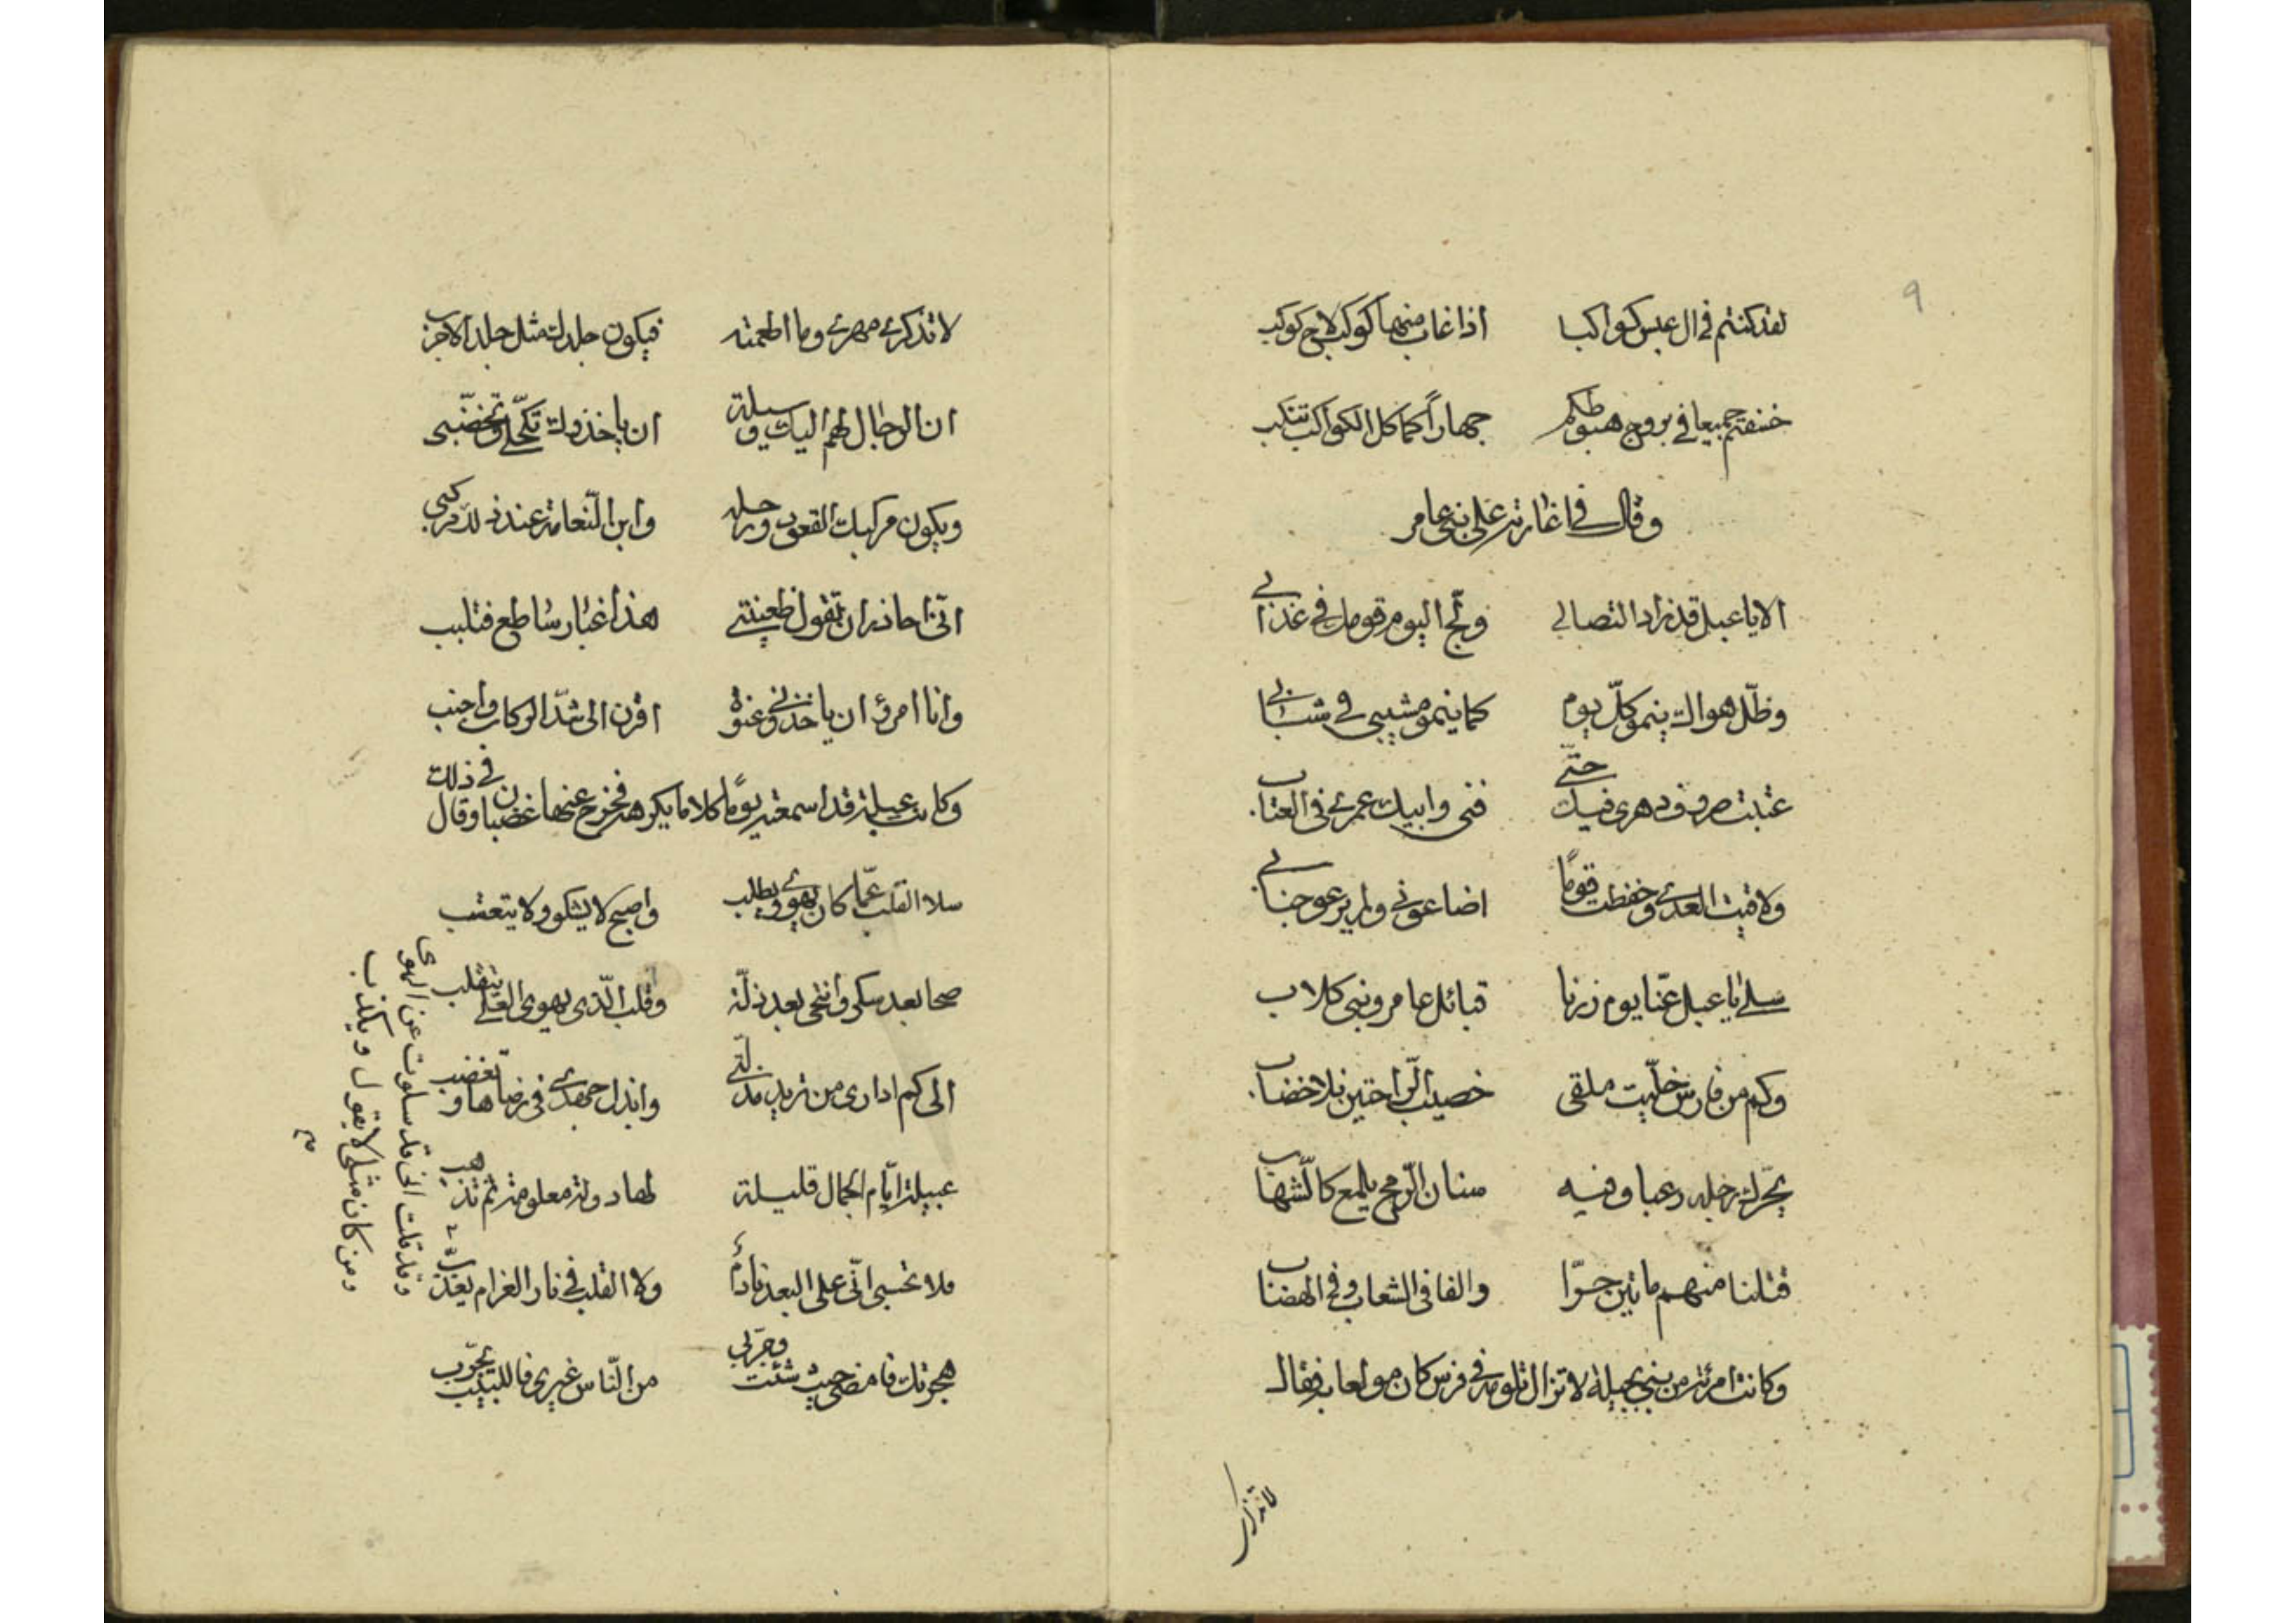 ٩
لقد كنتم في ال عبس كواكبا اذا غاب منها كوكب لاح كوكب
خسفتم جميعا في بروج هبوطكم جهاراً كما كل الكواكب تنكب
وقال في اغارته على بني عامر
الا يا عبل قد زاد التصابي ولجّ اليوم قومك في عذابي
وظلّ هواك ينمو كلّ يوم كما ينمو مشيبي في شبابي
عتبت صروف دهري فيك حتّى فني وابيك عمري في العتاب
ولاقيت العدى وحفظت قوماً اضاعوني ولم يرعو جنابي
سلي يا عبل عنّا يوم زرنا قبائل عامر وبني كلاب
وكم من فارس خلّيت ملقى خضيب الرّاحتين بلا خضاب
يحرّك رجله رعبا وفيه سنان الرّمح يلمع كالشّهاب
قتلنا منهم مائتين حرّا والفا في الشعاب وفي الهضاب
وكانت امرئة من بني بجيلة لا تزال تلومه في فرس كان مولعا به فقال
لا تذكري
لا تذكري مهري وما اطعمته فيكون جلدك مثل جلد الاجرب
ان الرجال لهم اليك وسيلة ان ياخذوك تكحّلي وتخضّبي
ويكون مركبك القعود ورحله وابن النّعامة عند ذلك مركبي
انّي احاذر ان تقول ظعينتي هذا غبار ساطع فتلبب
وانا امرؤ ان ياخذوني عنوة اقرن الى شدّ الركاب واجنب
وكانت عبيلة قد اسمعته يوماً كلاما يكرهه فخرج عنها غضبان وقال في ذلك
سلا القلب عمّا كان يهوى ويطلب واصبح لا يشكو ولا يتعتب
صحا بعد سكر وانتخى بعد ذلّة وقلب الّذي يهوى العلى يتقلب
الى كم اداري من تريد مذلّتي وابذل جهدي في رضاها وتغضب
عبيلة ايّام الجمال قليلة لها دولة معلومة ثم تذهب
فلا تحسبي انّي على البعد نادمٌ ولا القلب في نار الغرام يعذب
وقد قلت اني قد سلوت عن الهوى
ومن كان مثلي لا يقول ويكذب
هجرتك فامضي حيث شئت وجرّبي من النّاس غيري فاللبيب يجرّب